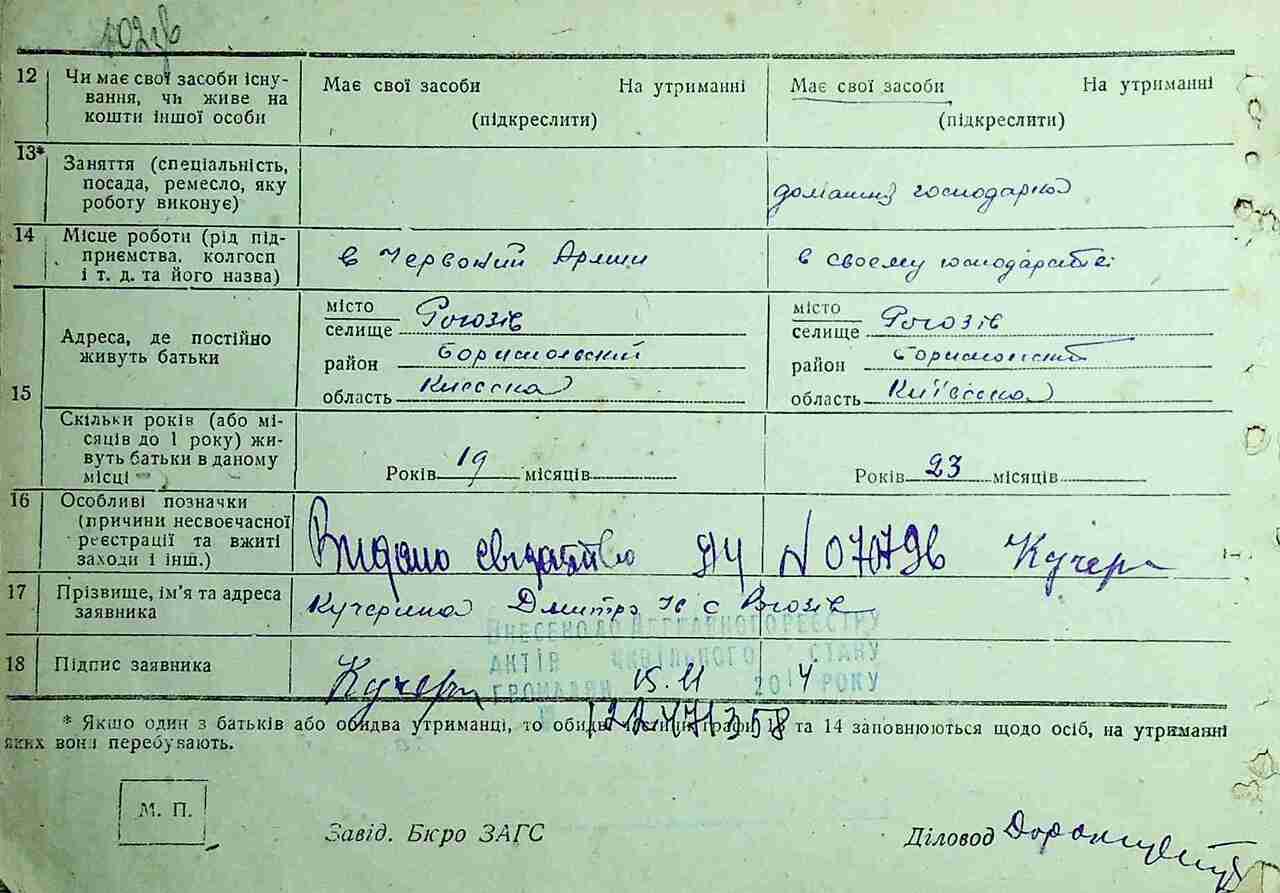 12 Чи має свої засоби існу-
вання, чи живе на
кошти іншої особи
Має свої засоби На утриманні
(підкреслити)
Має свої засоби На утриманні
(підкреслити)
13* Заняття (спеціальність,
посада, ремесло, яку
роботу виконує)
14 Місце роботи (рід під-
приємства, колгосп
і т. д. та його назва)
в Червоний Армии
в своему господарстві
15
Адреса, де постійно
живуть батьки
місто
селище Рогозів
район Бориспольский
область
місто
селище Рогозів
район
область Київська
Скільки років (або мі-
сяців до 1 року) жи-
вуть батьки в даному
місці
Років 19 місяців
Років 23 місяців
16 Особливі позначки
(причини несвоєчасної
реєстрації та вжиті
заходи і інш.)
Видано N 070796 Кучер
17 Прізвище, ім'я та адреса
заявника
Дмитро с Рогозів
ВНЕСЕНО ДО ДЕРЖАВНОГО РЕЄСТРУ
АКТІВ ЦИВІЛЬНОГО СТАНУ
ГРОМАДЯН 15.11 2014 РОКУ
18 Підпис заявника
Кучер
* Якщо один з батьків або обидва утриманці, то графи 13 та 14 заповнюються щодо осіб, на утриманні
яких вони перебувають.
М. П.
Завід. Бюро ЗАГС
Діловод